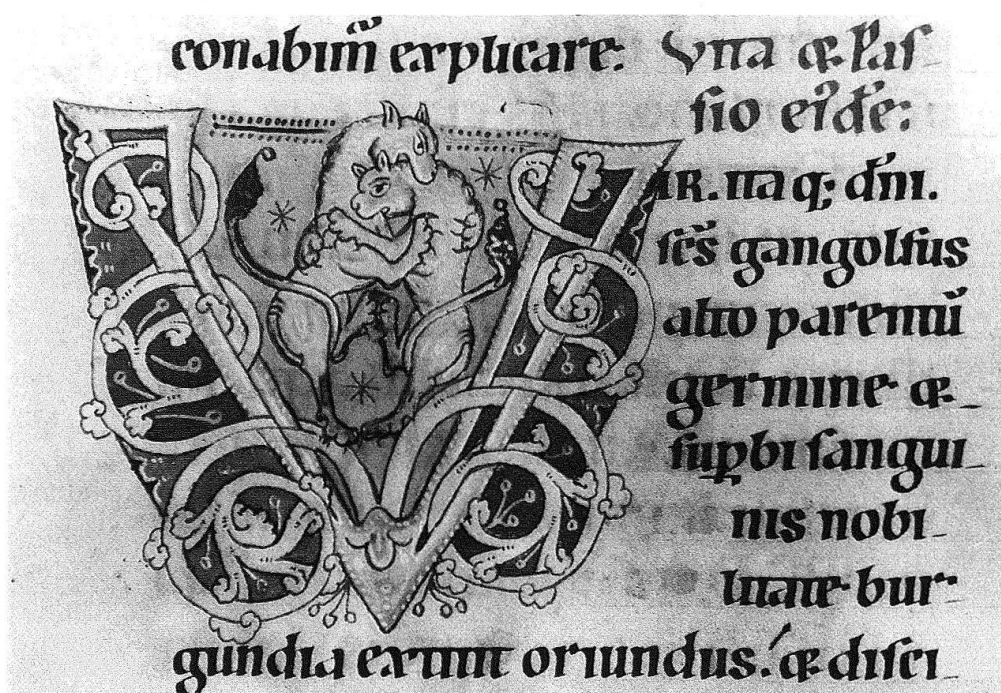 conabim̃ explicare: Vita & Pas-
sio ei⁹dẽ:
VIR. itaq; dñi.
scs̃ gangolfus
alto parentũ
germine &
suꝑbi sangui-
nis nobi-
litate bur-
gundia extitit oriundus. & disci